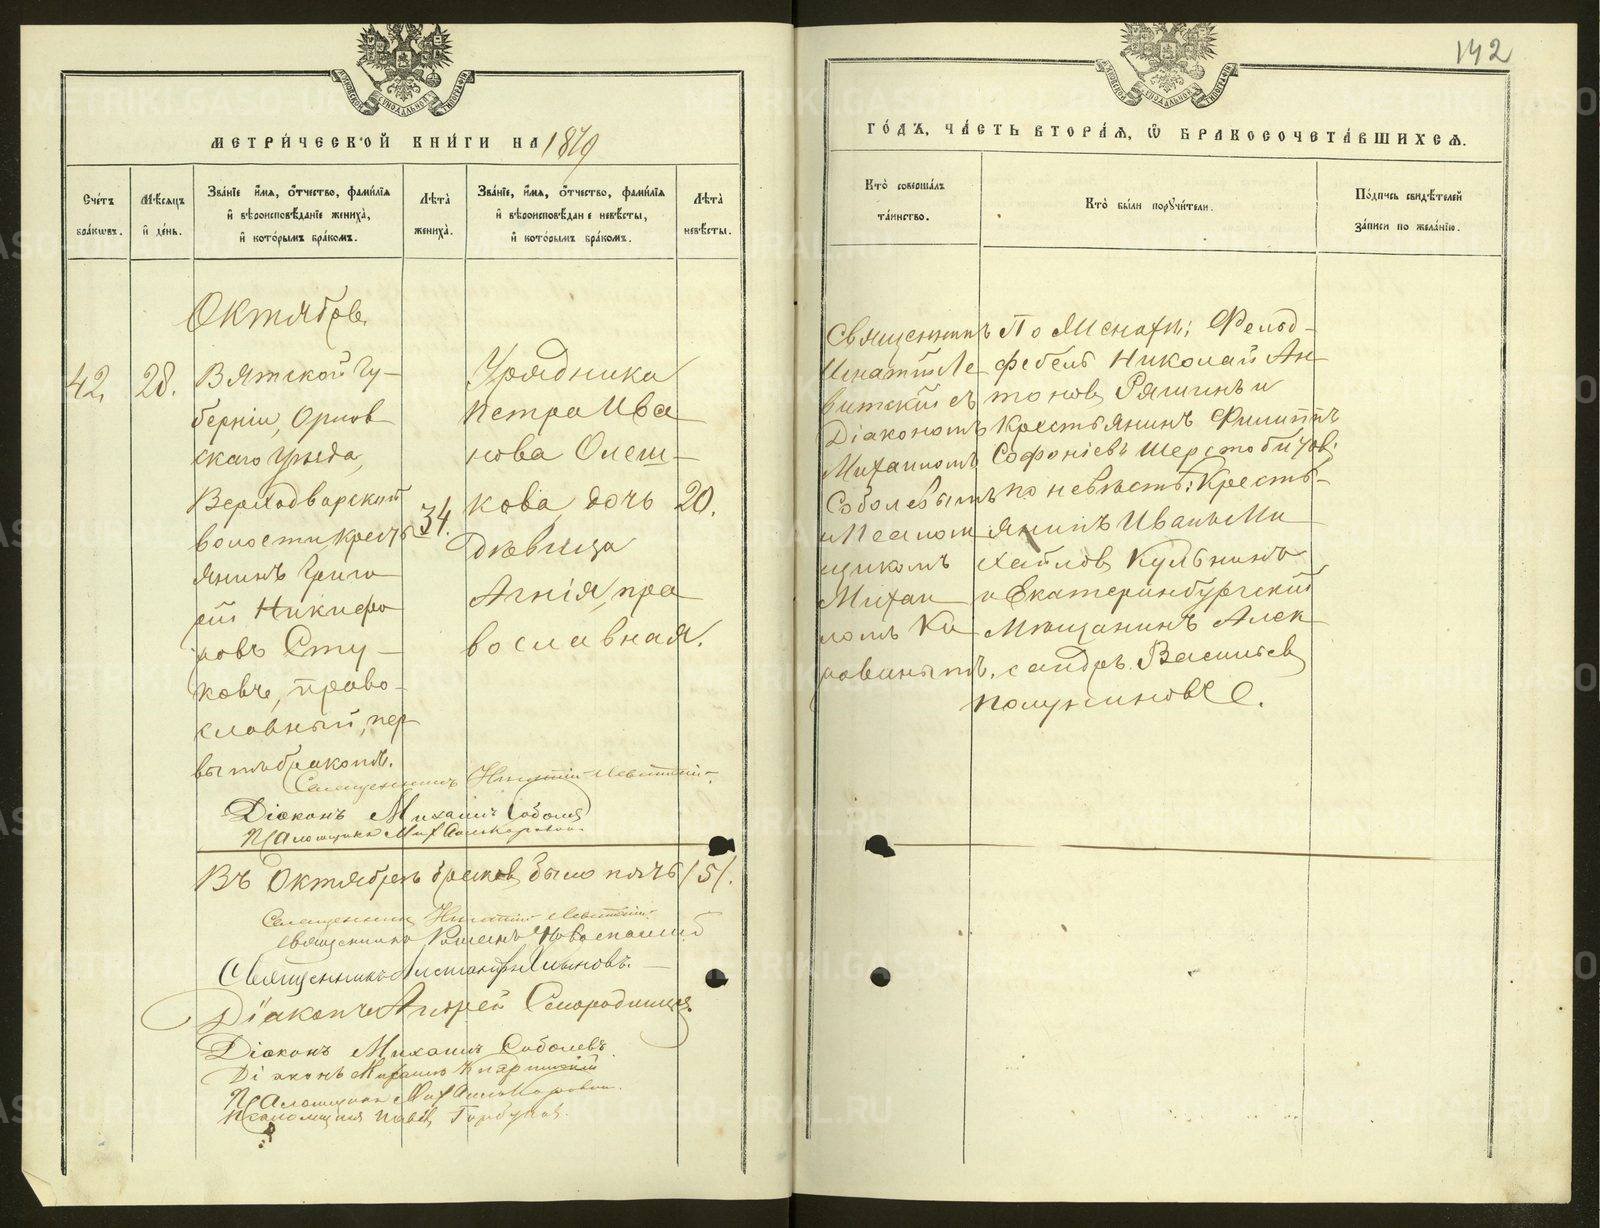 142
МЕТРИ́ЧЕСКОЙ КНИ́ГИ НА 1879
ГО́ДЪ, ЧА́СТЬ ВТОРА́Я, Ѿ БРАКОСОЧЕТА́ВШИХСЯ.
Сче́тъ бра́кωвъ.
Мѣ́сяцъ и҆ де́нь.
Зва́нїе и҆́мя, ѻ҆́тчество, фами́лїя
и҆ вѣроисповѣ́данїе жениха̀,
и҆ кото́рымъ бра́комъ.
Лѣ́та жениха̀.
Зва́нїе, и҆́мя, ѻ҆́тчество, фами́лїя
и҆ вѣроисповѣ́дан е невѣ́сты,
и҆ кото́рымъ бра́комъ.
Лѣ́та невѣ́сты.
Кто̀ соверша́лъ
та́инство.
Кто̀ бы́ли порꙋчи́тели.
По́дпись свидѣ́телей
за́писи по жела́нїю.
Октябрь
42.
28.
Вятской Гу-
берніи, Орлов
скаго Уѣзда,
Верходворской
волости, кресть
янинъ Григо
рій Никифо
ровъ Сту-
ковъ, право-
славный, пер
вымъ бракомъ.
34.
Урядника
Петра Ива
нова Олеш-
кова дочь
Дѣвица
Агнія, пра
вославная.
20.
Священникъ
Игнатій Ле
витскій съ
Діакономъ
Михаиломъ
Соболевымъ
и Псалом
щикомъ
Михаи
ломъ Ка
По женихѣ; Фельд-
фебель Николай Ан
тоновъ Ряшинъ и
Крестьянинъ Филиппъ
Софоніевъ Шерстобитовъ;
по невѣстѣ; Кресть-
янинъ Иванъ Ми
хайловъ Кульнинъ
и Екатеринбургскій
Мѣщанинъ Алек
сандръ Васильевъ
Священникъ Игнатій Левитскій
Діаконъ Михаилъ Соболевъ
Псаломщикъ Михаилъ
Въ Октябрѣ браковъ было пять /5/.
Священникъ Игнатій Левитскій
Священникъ
Священникъ
Діаконъ Андрей Смородинцевъ
Діаконъ Михаилъ Соболевъ.
Діаконъ Михаилъ
Псаломщикъ Михаилъ
Псаломщикъ Горбуновъ.
METRIKI.GASO-URAL.RU